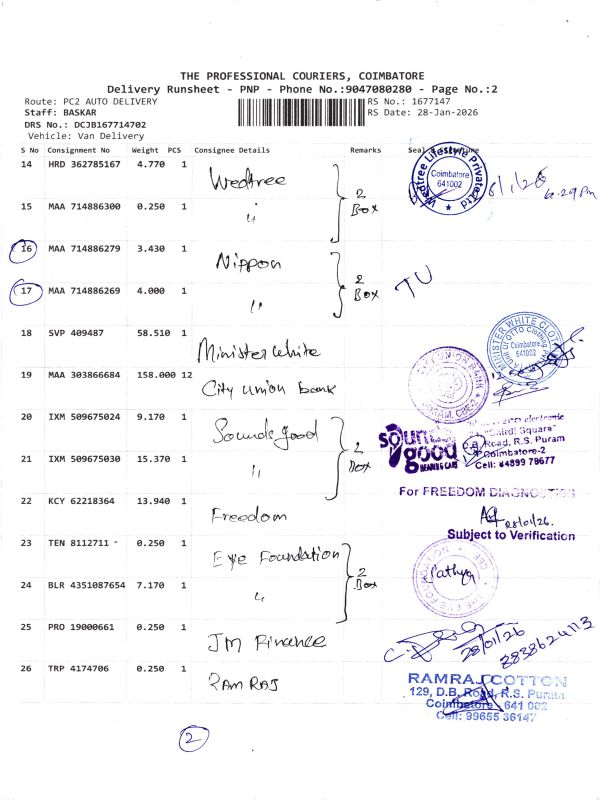 THE PROFESSIONAL COURIERS, COIMBATORE
Delivery Runsheet - PNP - Phone No.:9047080280 - Page No.:2
Route: PC2 AUTO DELIVERY
RS No.: 1677147
Staff: BASKAR
RS Date: 28-Jan-2026
DRS No.: DCJB167714702
Vehicle: Van Delivery
S No Consignment No Weight PCS Consignee Details Remarks Seal &
14 HRD 362785167 4.770 1 Wedtree
Wedtree Lifestyle Private Ltd
Coimbatore
641002
6.29 pm
15 MAA 714886300 0.250 1 "
2
Box
16 MAA 714886279 3.430 1 Nippon
17 MAA 714886269 4.000 1 "
2
Box
TU
18 SVP 409487 58.510 1 Minister white
MINISTER WHITE
Coimbatore
641002
19 MAA 303866684 158.000 12 City union bank
UNION BANK
20 IXM 509675024 9.170 1 Sounds good
21 IXM 509675030 15.370 1 "
2
Box
sounds
good
HEARING CARE
electronic
Square"
D.B. Road, R.S. Puram
Coimbatore-2
Cell: 94899 78677
22 KCY 62218364 13.940 1 Freedom
For FREEDOM DIAGNOSTICS
28/01/26.
Subject to Verification
23 TEN 8112711 - 0.250 1 Eye Foundation
24 BLR 4351087654 7.170 1 "
2
Box
THE EYE FOUNDATION
CBE
Sathya
25 PRO 19000661 0.250 1 JM Finance
28/01/26
26 TRP 4174706 0.250 1 RAM RAJ
RAMRAJ COTTON
129, D.B. Road, R.S. Puram
Coimbatore 641 002
Cell: 99655 36147
2